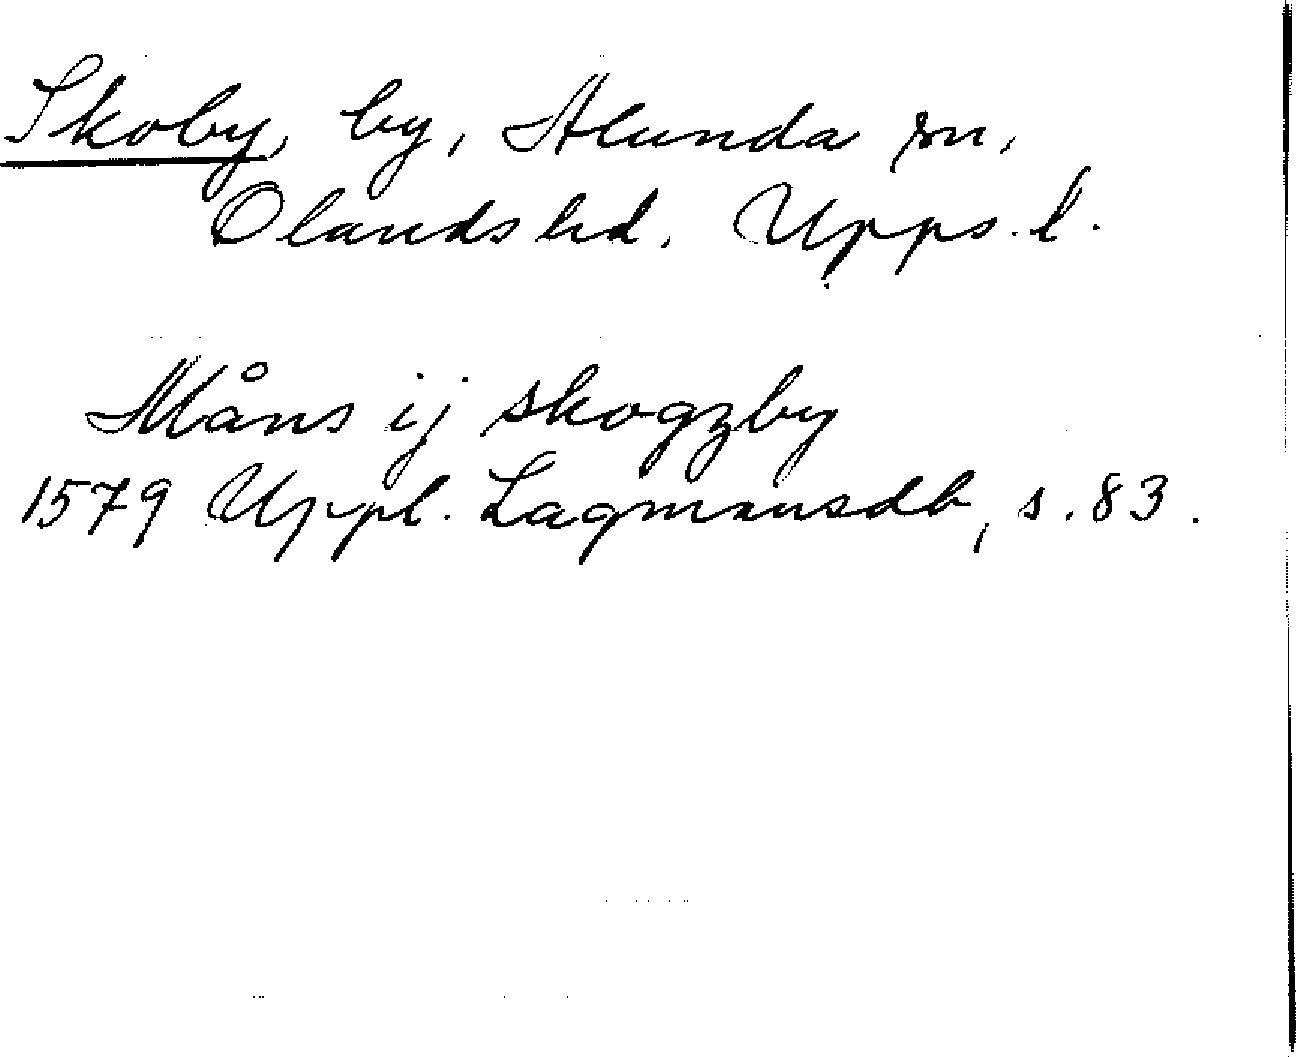 Skoby, by, Alunda sn,
Olands hd. Upps. l.
Måns ij skogzby
1579 Uppl. Lagmansdb, s. 83.